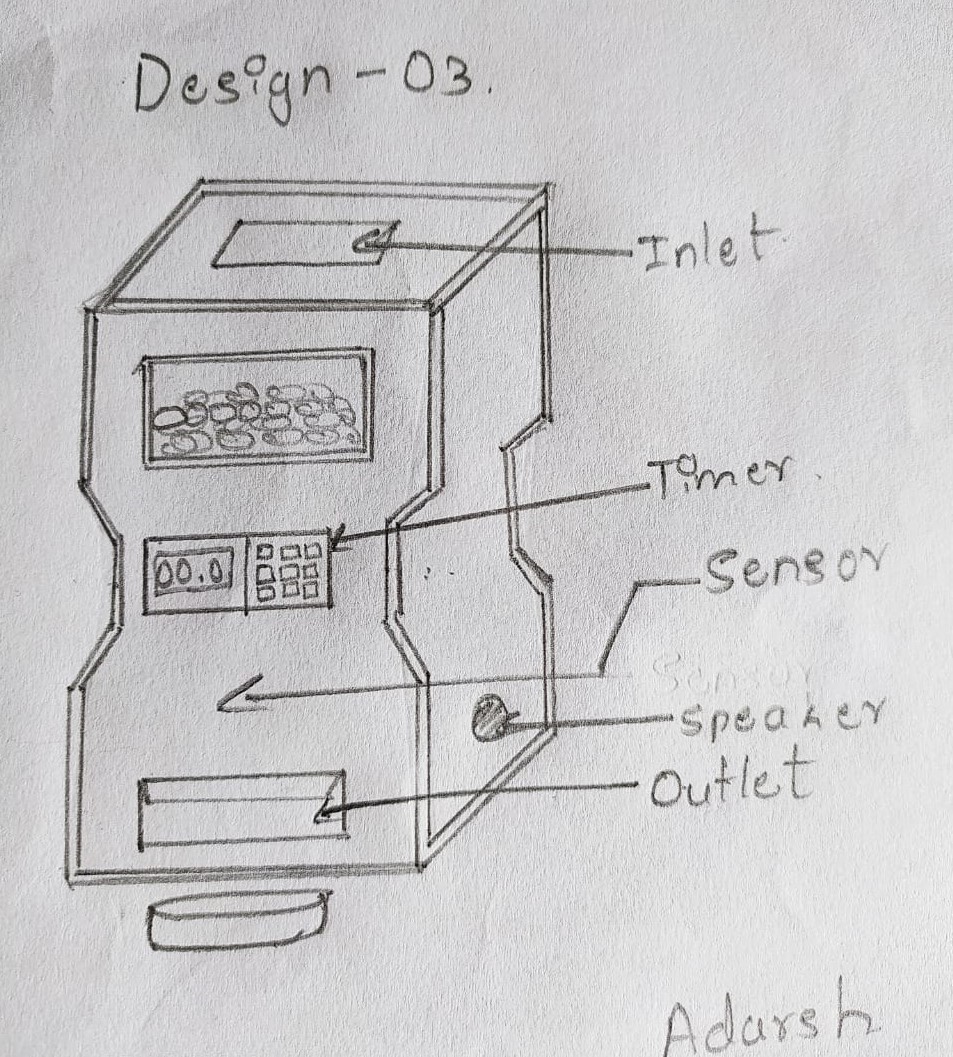 Design - 03.
Inlet.
Timer.
00.0
Sensor
Sensor
Speaker
Outlet
Adarsh